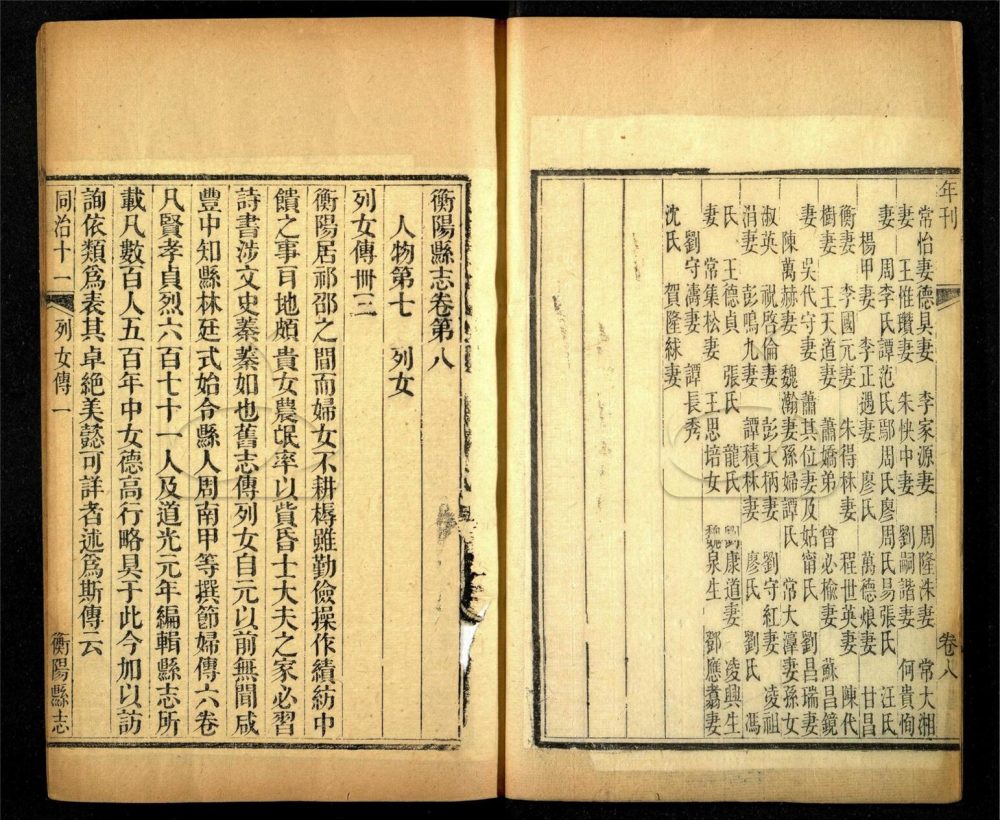 年刊 卷八
常怡妻德具妻 李家源妻 周隆洙妻 常大湘
妻 王惟瓚妻 朱怏中妻 劉嗣諧妻 何貴恂
妻 周李氏譚范氏鄢周氏廖周氏易張氏 汪氏
楊甲妻 李正遇妻 廖氏 萬德娘妻 甘昌
衡妻 李國元妻 朱得林妻 程世英妻 陳代
樹妻 王天道妻 蕭嬌弟 曾必榆妻 蘇昌鏡
妻 吳代守妻 蕭其位妻及姑甯氏 劉昌瑞妻
陳萬赫妻 魏瀚妻孫婦譚氏 常大漳妻孫女
淑英 祝啓倫妻 彭大柄妻 劉守紅妻 凌祖
涓妻 彭鳴九妻 譚積林妻 廖氏 劉氏 馮
氏 王德貞 張氏 龍氏 劉康道妻 凌興生
妻 常集松妻 王思培女 魏泉生 鄧應翥妻
劉守濤妻 譚長秀
沈氏 賀隆綝妻
衡陽縣志卷第八
人物第七 列女
列女傳卌三
衡陽居祁邵之間而婦女不耕耨雖勤儉操作績紡中
饋之事耳地頗貴女農氓率以貲昏士大夫之家必習
詩書涉文史蓁蓁如也舊志傳列女自元以前無聞咸
豐中知縣林廷式始令縣人周南甲等撰節婦傳六卷
凡賢孝貞烈六百七十一人及道光元年編輯縣志所
載凡數百人五百年中女德高行略具于此今加以訪
詢依類爲表其卓絶美懿可詳者述爲斯傳云
同治十二 列女傳一 衡陽縣志